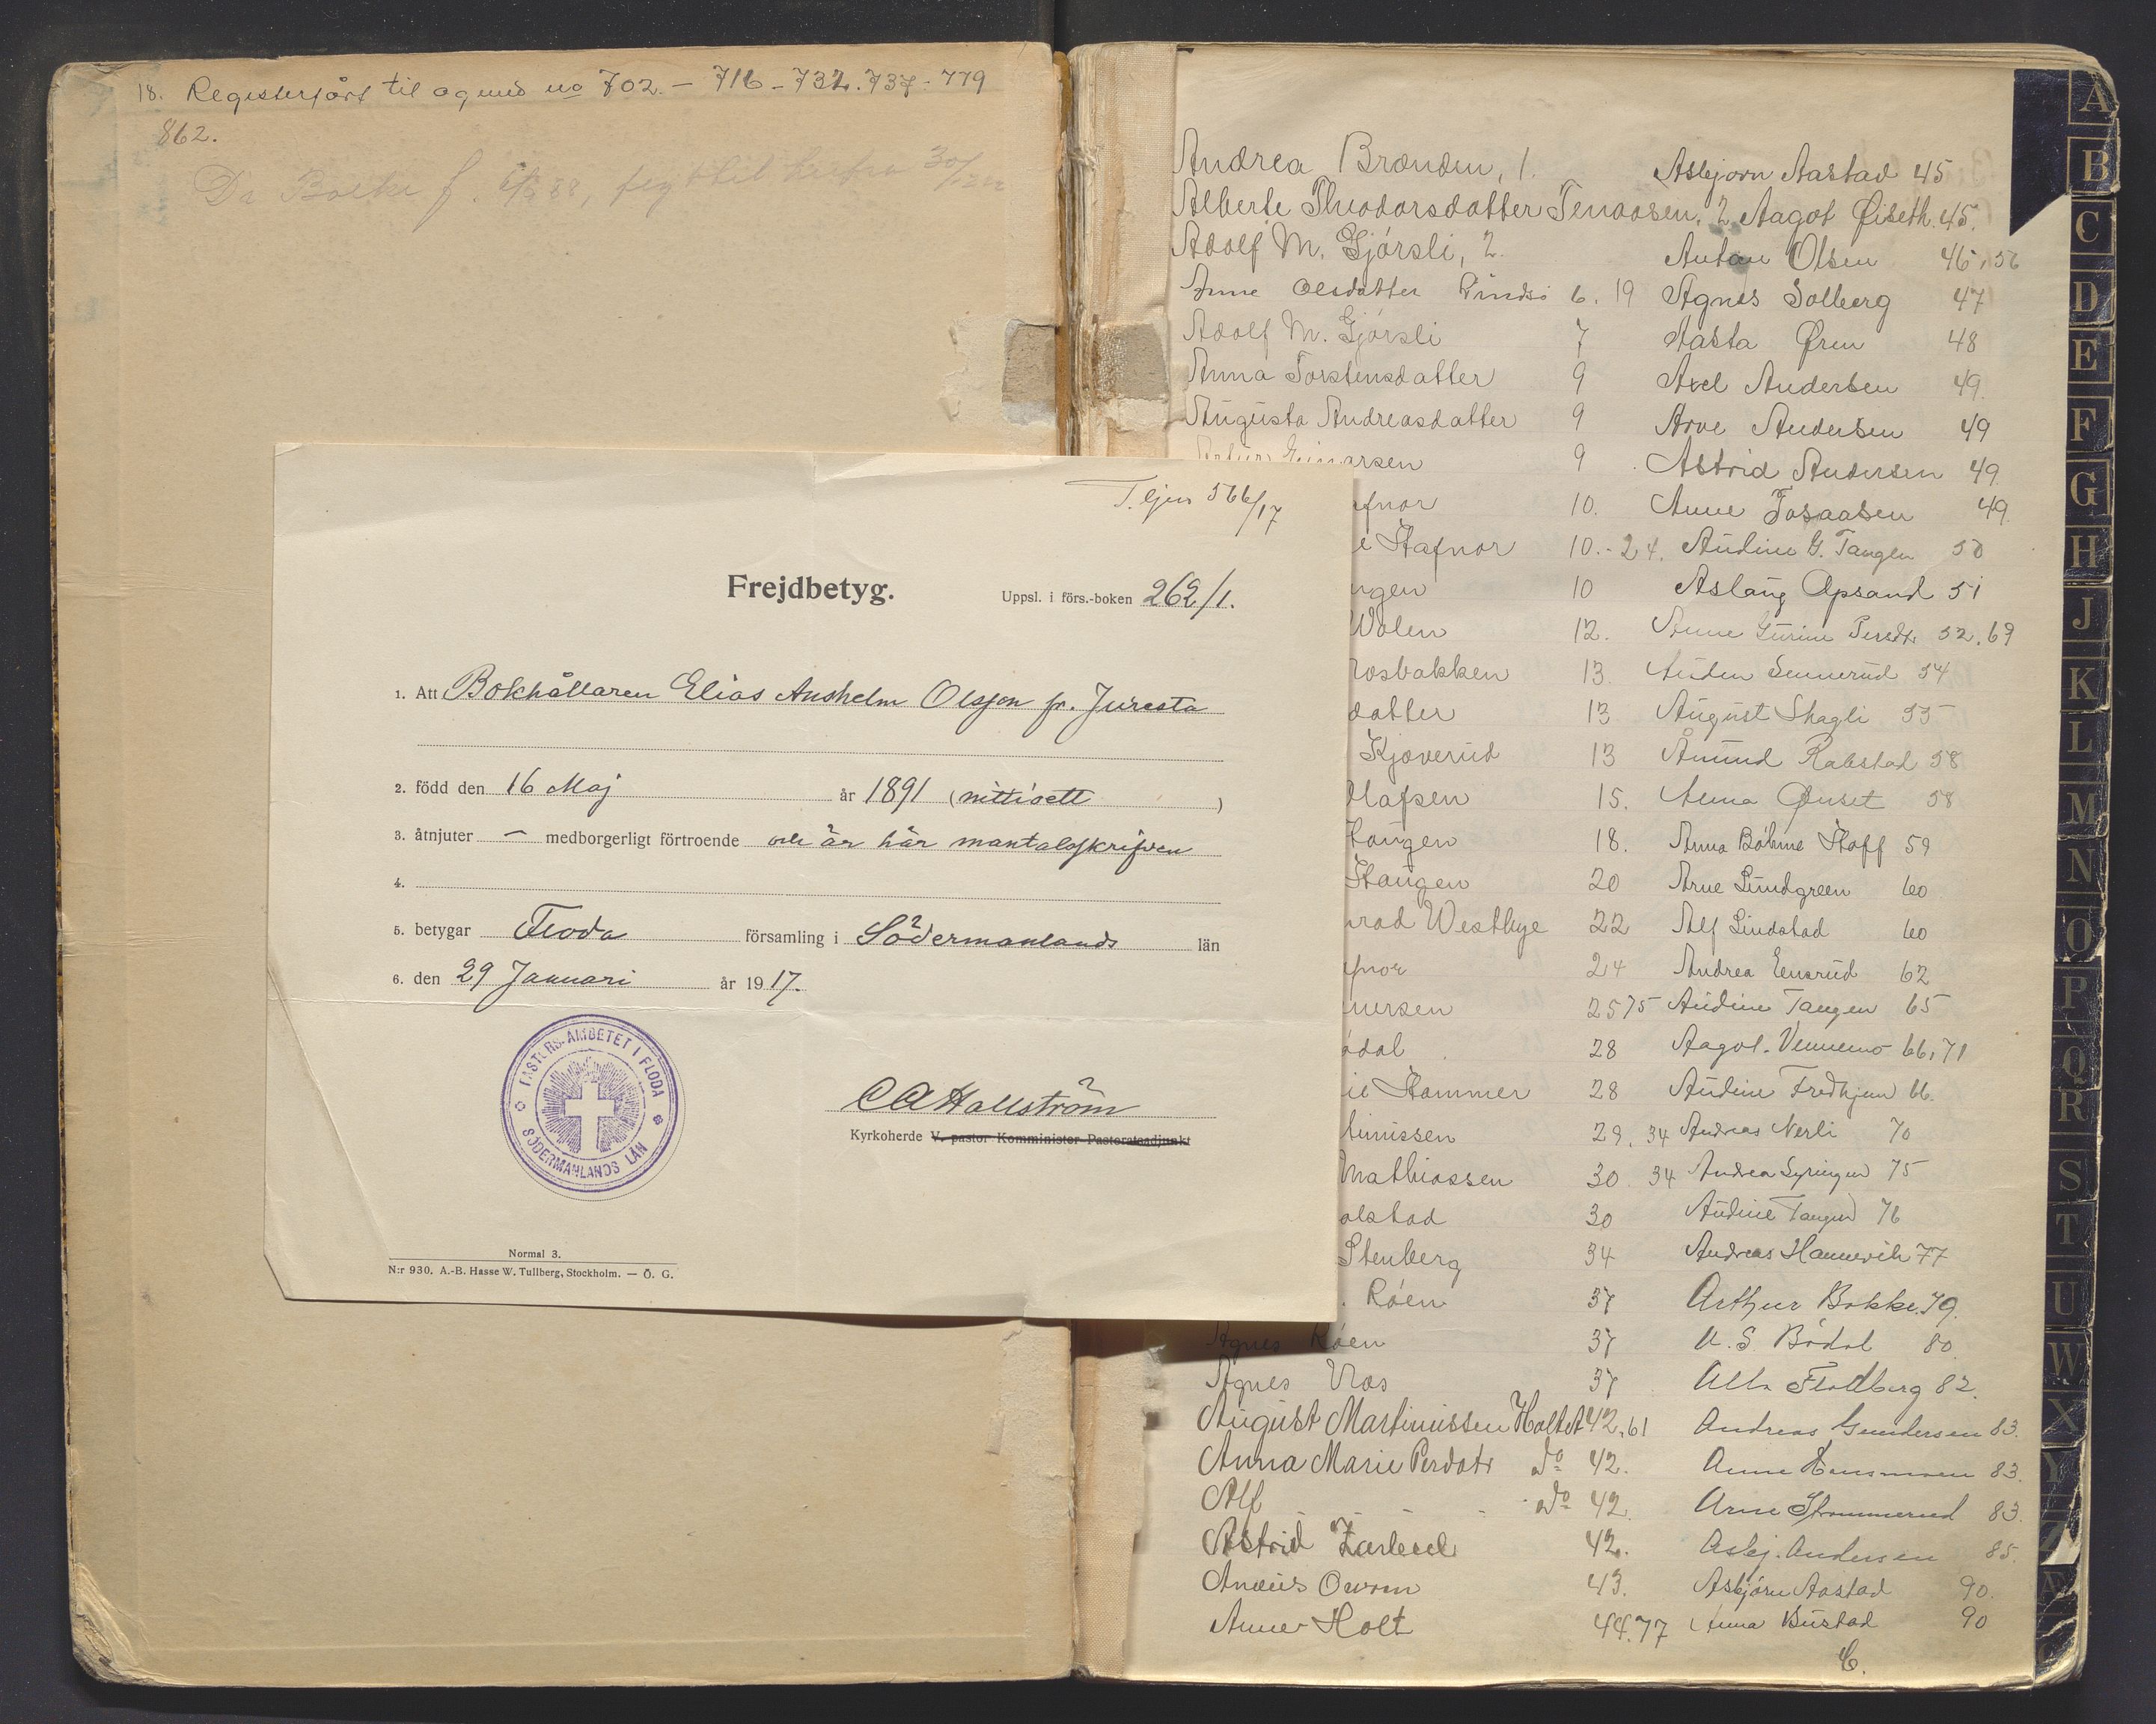 18. Registerført til og med no 702. - 716 - 732. 737 - 779
862.
T. ljen 566/17
Frejdbetyg.
Uppsl. i förs.-boken 262/1.
1. Att Bokhållaren Elias Anshelm Olsson fr. Juresta
2. född den 16 Maj år 1891 (nittioett)
3. åtnjuter — medborgerligt förtroende och är här mantalsskrifven
4.
5. betygar Floda församling i Södermanlands län
6. den 29 Januari år 1917.
PASTORS-ÄMBETET I FLODA
SÖDERMANLANDS LÄN
C A Hallström
Kyrkoherde V. pastor Komminister Pastoratsadjunkt
Normal 3.
N:r 930. A.-B. Hasse W. Tullberg, Stockholm. — Ö. G.
Andrea Brænden, 1.
Alberte Theodorsdatter Tenaasen, 2
Adolf M. Gjørsli, 2.
Anne Olsdatter 6. 19
Adolf M. Gjørsli 7
Anna Torstensdatter 9
Augusta Andreasdatter 9
arsen 9
fnor 10.
e Stafnor 10.- 24.
ngen 10
Wolen 12.
rosbakken 13.
datter 13
Kjøverud 13
Olafsen 15.
Haugen 18.
Haugen 20
rad Westbye 22
fnor 24
nersen 25 75
ødal 28
ie Hammer 28
timissen 29, 34
Mathiassen 30. 34
olstad 30
Stenberg 34
. Røen 37
Agnes Røen 37
Agnes Aas 37
August Martinissen Holtet 42, 61
Anna Marie Persdotr do 42.
Alf - - - do 42.
Astrid 42.
43.
Anne Holt 44. 77
Asbjørn Aastad 45
Aagot Øiseth 45.
Anton Olsen 46, 56
Agnes Solberg 47
Aasta Øren 48
Axel Andersen 49.
Arve Andersen 49
Astrid Andersen 49
Anne Fosaasen 49.
Audine G. Tangen 50
Aslaug Opsand 51
Anne Gurine Persdtr 52, 69
Auden Sennerud 54
August Skagli 55
Åmund Rabstad 58
Alma Ønset 58
Anna Böhme Hoff 59
Arne Lundgreen 60
Alf Lindstad 60
Andrea Eensrud 62
Audine Tangen 65
Aagot Vennemo 66, 71
Audine Fredhjem 66.
Andreas Nerli 70
Andrea Syringen 75
Audine Tangen 76
Andreas Hannevik 77
Arthur Bakke. 79.
A. S Bødal 80.
Flodberg 82.
Andreas Gundersen 83.
Anne 83.
Arne Strommerud 83.
Asbj. Andersen 85.
Asbjørn Aastad 90.
Anna Bustad 90
C.
A
B
C
D
E
F
G
H
J
K
L
M
N
O
P
Q
R
S
T
U
W
X
Y
Z